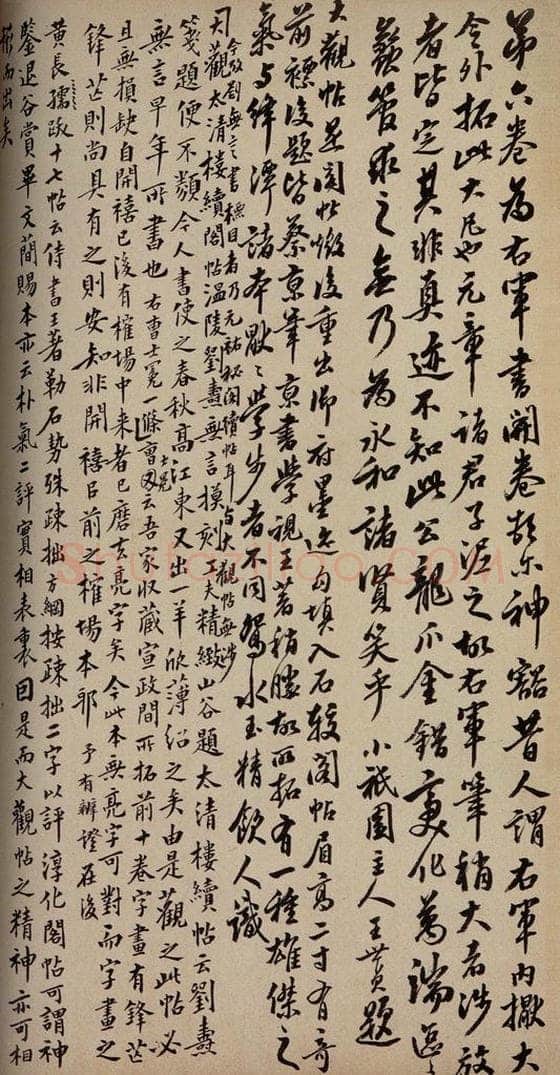 第六卷為右軍書開卷頓尔神豁昔人謂右軍內擫大
令外拓此大凡也元章諸君子泥之故右軍筆稍大者涉放
者皆定其非真迹不知此公龍爪金錯變化萬端區區
蠡管求之無乃為永和諸賢笑乎小祇園主人王世貞題
大觀帖是閣帖燬後重出御府墨迹勾填入石較閣帖眉高二寸有奇
前標後題皆蔡京筆京書學視王著稍勝故所拓有一種雄傑之
氣与絳潭諸本歇〻學步者不同鴛水玉精飲人識
今考劉無言書標目者乃元祐秘閣續帖耳与大觀帖無涉
大觀太清樓續閣帖温陵劉燾無言摸刻工夫精緻山谷題太清樓續帖云劉燾
箋題便不纇今人書使之春秋高江東又出一羊欣薄紹之矣由是觀之此帖必
無言早年所書也 右曹士冕一條 士冕曾因云吾家収藏宣政間所拓前十卷字畫有鋒芒
且無損缺自開禧已後有榷場中来者已磨去亮字矣今此本無亮字可對而字畫之
鋒芒則尚具有之則安知非開禧已前之榷場本耶 予有辨證在後
黄長孺跋十七帖云侍書王著勒石勢殊疎拙方綱按疎拙二字以評淳化閣帖可謂神
鑒退谷賞畢文簡賜本亦云朴氣二評實相表裏因是而大觀帖之精神亦可相
較而出矣
Shufazidian.com